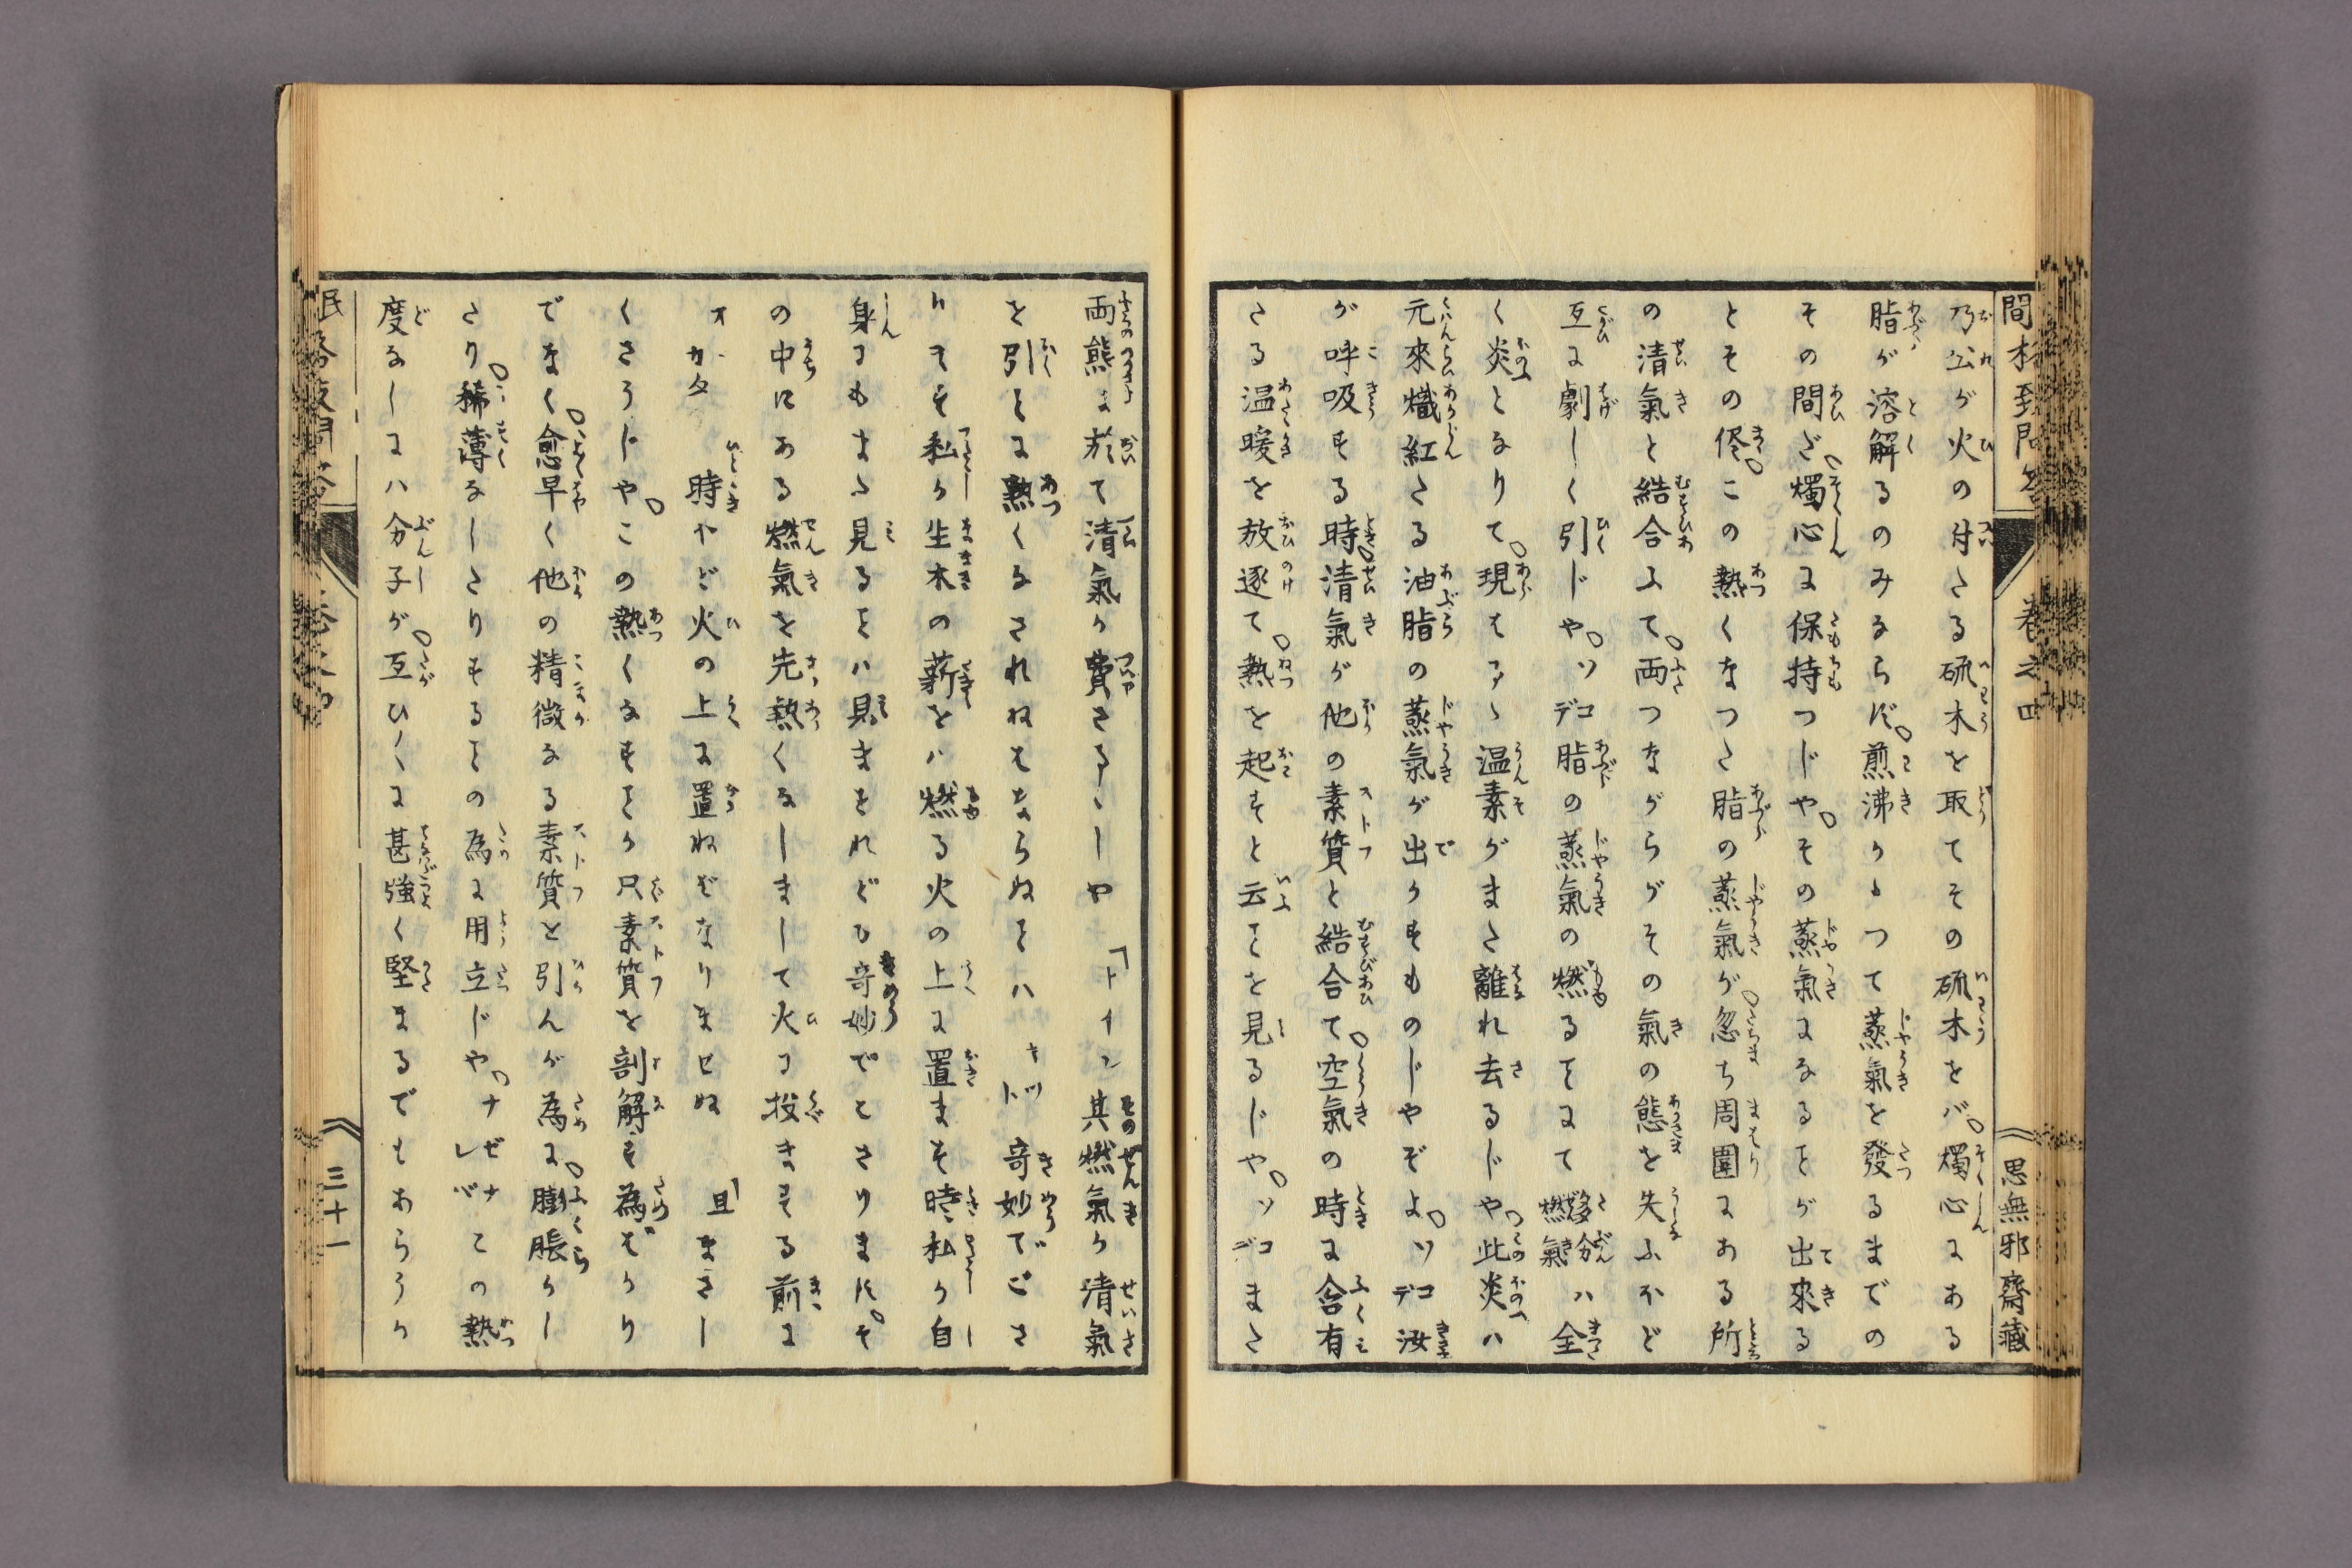 乃公が火の付たる硫木を取てその硫木をバ燭心にある
脂が溶解るのみならず煎沸かゝつて蒸氣を發るまでの
その間ざ燭心に保持つじやその蒸氣になるヿが出來る
とその侭この熱くなつた脂の蒸氣が忽ち周圍にある所
の清氣と結合ふて両つながらがその氣の態を失ふほど
互に劇しく引じやソコデ脂の蒸氣の燃るヿにて燃氣ハ全
く炎となりて現はるゝ温素がまた離れ去るじや此炎ハ
元來熾紅たる油脂の蒸氣が出かすものじやぞよソコデ汝
が呼吸する時清氣が他の素質と結合て空氣の時に含有
たる温暖を放逐て熱を起すと云ヿを見るじやソコデまた
両熊に於て清氣か費さるゝしや「トイフ其燃氣か清氣
を引ヿに熱くなされねばならぬヿハキツト竒妙でごさ
ります私か生木の薪を燃る火の上に置ます時私か自
身にもまゝ見るヿハ見ますれど竒妙でござりますそ
の中にある燃氣を先熱くなしまして火に投まする前に
時やど火の上に置ねばなりませぬ「且まさし
くさうじやこの熱くなすヿか只素質を剖解す為ばかり
でなく愈早く他の精微なる素質を引んが為に膨脹かし
たり稀薄なしたりするヿの為に用立じやナゼナレバこの熱
度なしにハ分子が互ひに甚強く堅まるでもあらうか
卷之四
思無邪齋藏
三十一